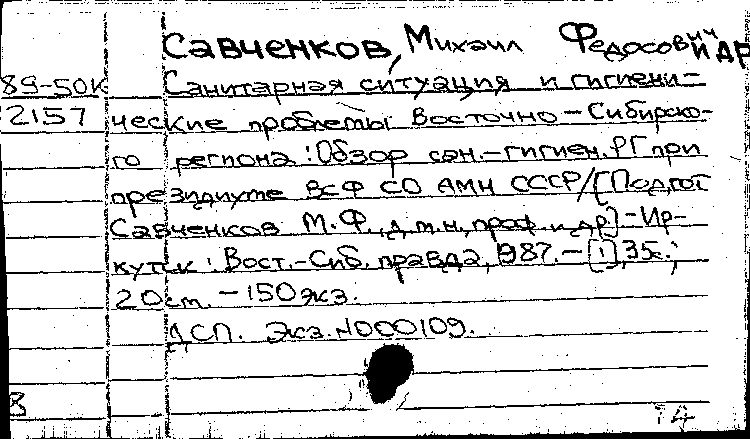 Савченков, Михаил Федосович и др
89-50к Санитарная ситуация и гигиени-
2157 ческие проблемы Восточно-Сибирско-
го региона: Обзор сан.-гигиен. РГ при
президиуме ВСФ СО АМН СССР/[Подгот
Савченков М.Ф., д.м.н., проф. и др.]-Ир-
кутск: Вост.-Сиб. правда, 1987.-[1],35с.;
20см. -150экз.
ДСП. Экз. N000109.
В 14